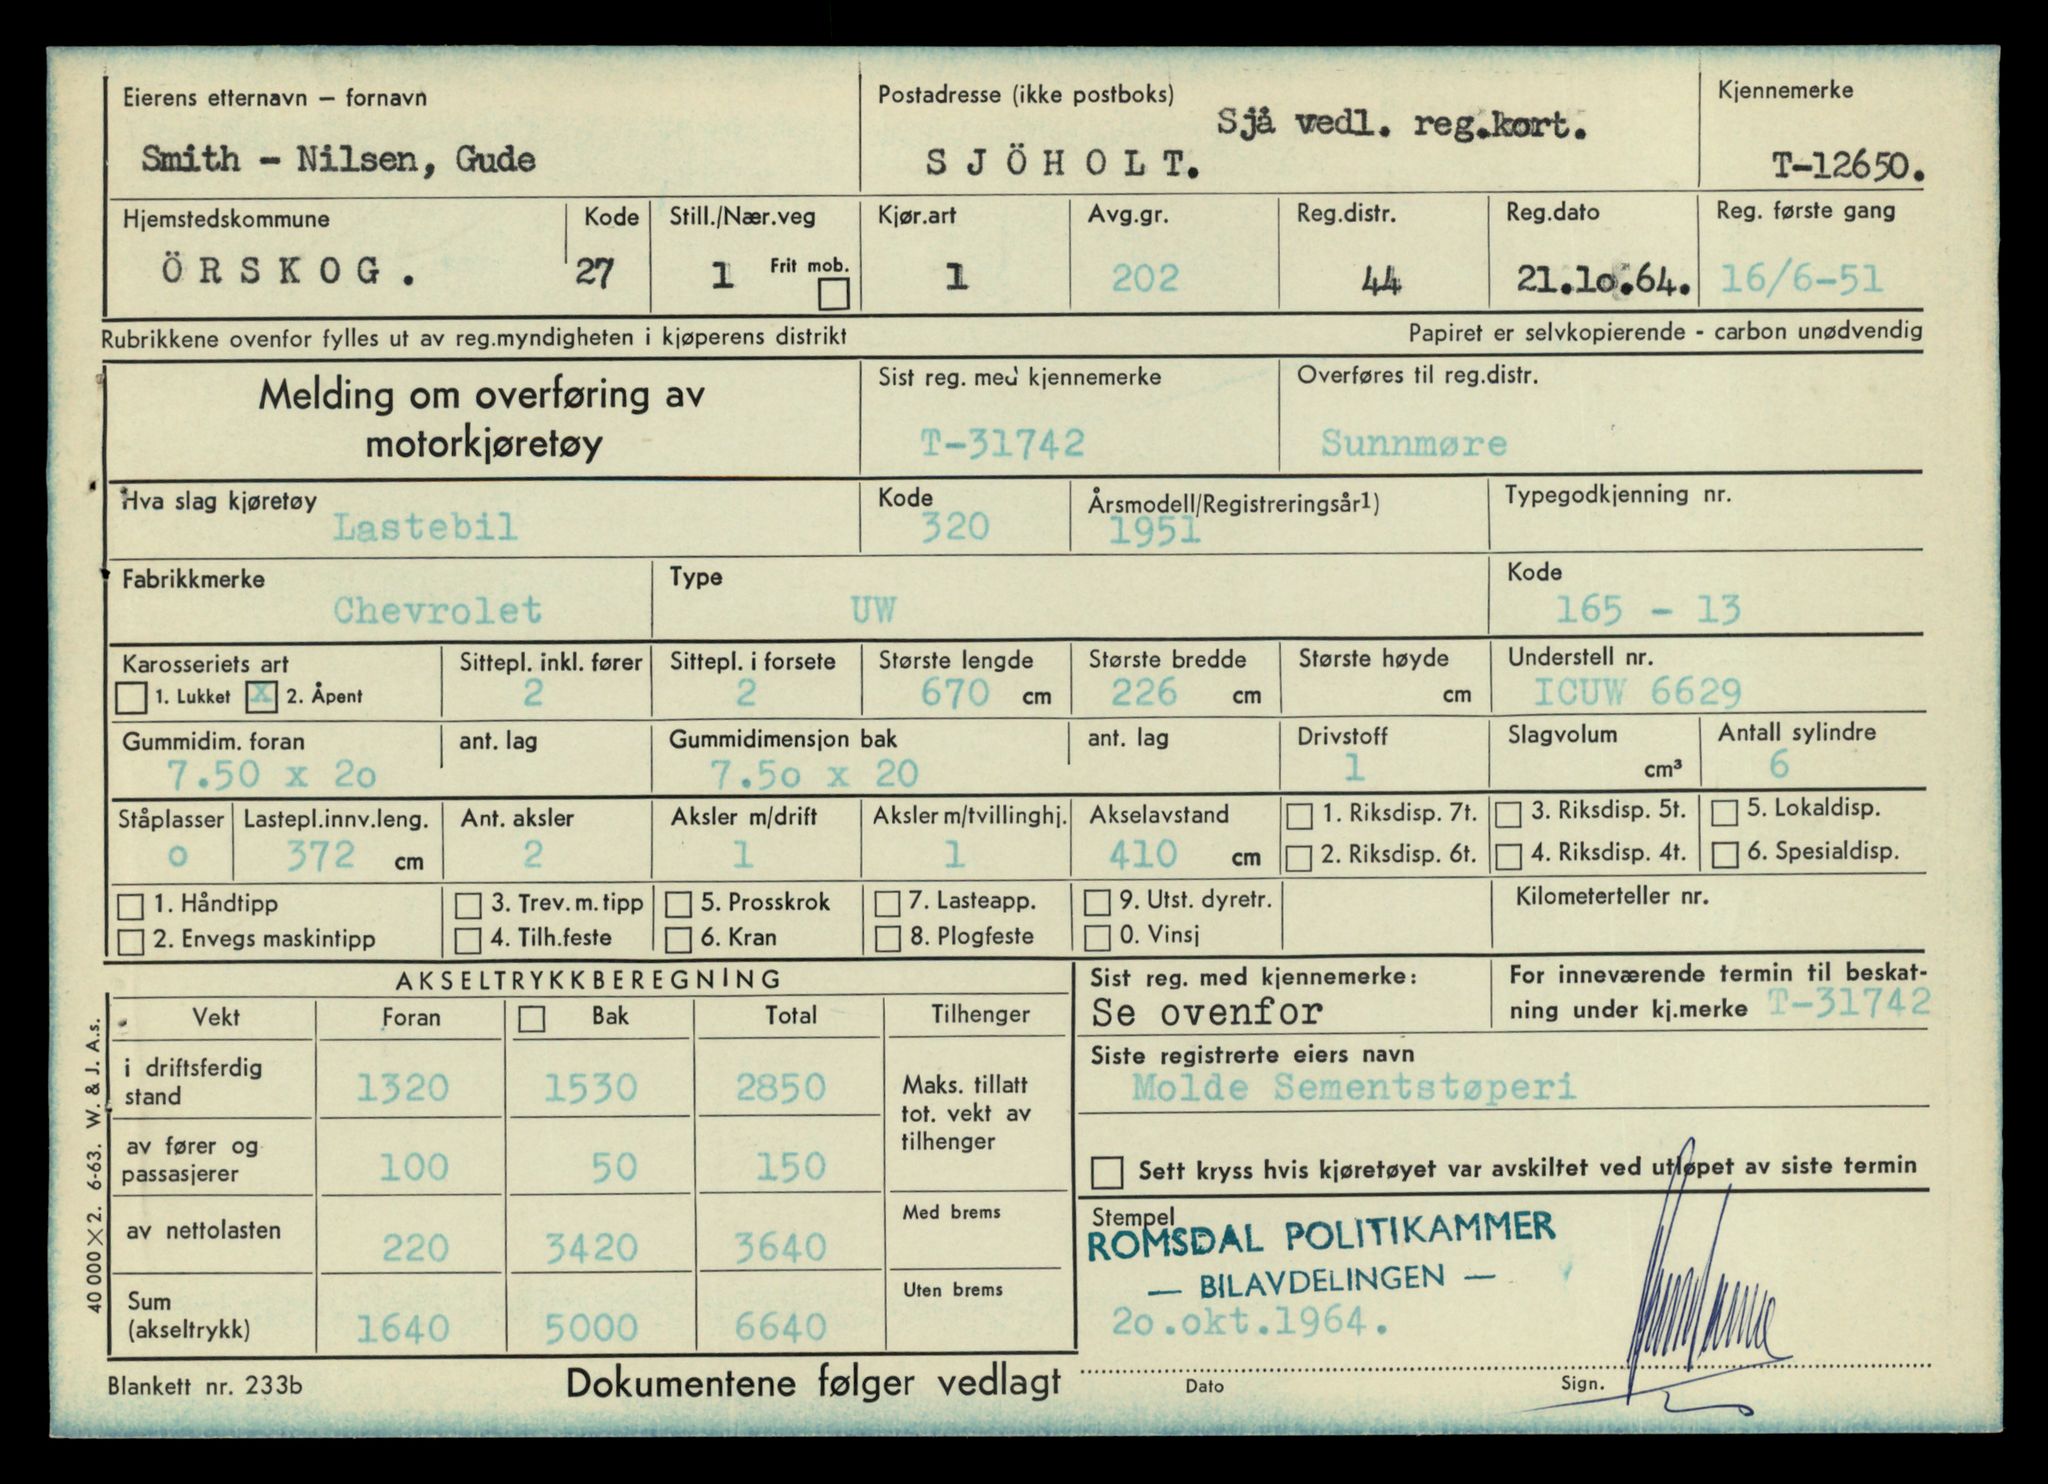 Eierens etternavn – fornavn
Smith - Nilsen, Gude
Postadresse (ikke postboks)
Sjå vedl. reg.kort.
SJÖHOLT.
Kjennemerke
T-12650.
Hjemstedskommune
ÖRSKOG.
Kode
27
Still./Nær.veg
1 Frit mob.
Kjør.art
1
Avg.gr.
202
Reg.distr.
44
Reg.dato
21.1o.64.
Reg. første gang
16/6-51
Rubrikkene ovenfor fylles ut av reg.myndigheten i kjøperens distrikt
Papiret er selvkopierende - carbon unødvendig
Melding om overføring av
motorkjøretøy
Sist reg. med kjennemerke
T-31742
Overføres til reg.distr.
Sunnmøre
Hva slag kjøretøy
Lastebil
Kode
320
Årsmodell/Registreringsår1)
1951
Typegodkjenning nr.
Fabrikkmerke
Chevrolet
Type
UW
Kode
165 - 13
Karosseriets art
1. Lukket x 2. Åpent
Sittepl. inkl. fører
2
Sittepl. i forsete
2
Største lengde
670 cm
Største bredde
226 cm
Største høyde
cm
Understell nr.
ICUW 6629
Gummidim. foran
7.50 x 2o
ant. lag
Gummidimensjon bak
7.5o x 20
ant. lag
Drivstoff
1
Slagvolum
cm³
Antall sylindre
6
Ståplasser
o
Lastepl.innv.leng.
372 cm
Ant. aksler
2
Aksler m/drift
1
Aksler m/tvillinghj.
1
Akselavstand
410 cm
1. Riksdisp. 7t.
2. Riksdisp. 6t.
3. Riksdisp. 5t.
4. Riksdisp. 4t.
5. Lokaldisp.
6. Spesialdisp.
1. Håndtipp
2. Envegs maskintipp
3. Trev. m. tipp
4. Tilh.feste
5. Prosskrok
6. Kran
7. Lasteapp.
8. Plogfeste
9. Utst. dyretr.
0. Vinsj
Kilometerteller nr.
AKSELTRYKKBEREGNING
Vekt Foran Bak Total Tilhenger
i driftsferdig
stand
1320 1530 2850
av fører og
passasjerer
100 50 150
av nettolasten
220 3420 3640
Sum
(akseltrykk)
1640 5000 6640
Maks. tillatt
tot. vekt av
tilhenger
Med brems
Uten brems
Sist reg. med kjennemerke:
Se ovenfor
For inneværende termin til beskat-
ning under kj.merke T-31742
Siste registrerte eiers navn
Molde Sementstøperi
Sett kryss hvis kjøretøyet var avskiltet ved utløpet av siste termin
Stempel
ROMSDAL POLITIKAMMER
— BILAVDELINGEN —
2o.okt.1964.
Dato
Sign.
40 000 X 2. 6-63. W. & J. A.s.
Blankett nr. 233b
Dokumentene følger vedlagt